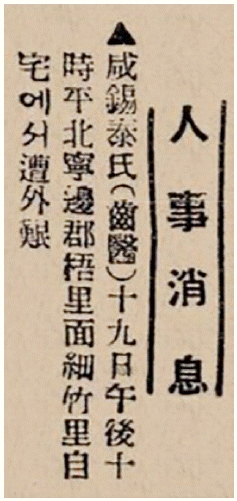 人事消息
▲咸錫泰氏(齒醫)十九日午後十
時平北寧邊郡梧里面細竹里自
宅에서遭外艱